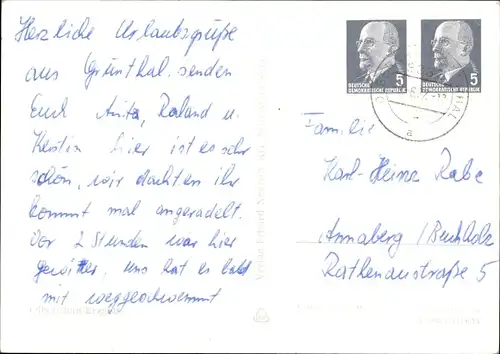 Herzliche Urlaubsgrüße
aus Grünthal senden
Euch Anita, Roland u.
Kerstin hier ist es sehr
schön, wir dachten ihr
kommt mal angeradelt.
Vor 2 Stunden war hier
gewitter, uns hat es bald
mit weggeschwemmt
5
DEUTSCHE
DEMOKRATISCHE REPUBLIK
5
DEUTSCHE
DEMOKRATISCHE REPUBLIK
a
Familie
Karl-Heinz Rabe
Annaberg/Buchholz
Rathenaustraße 5